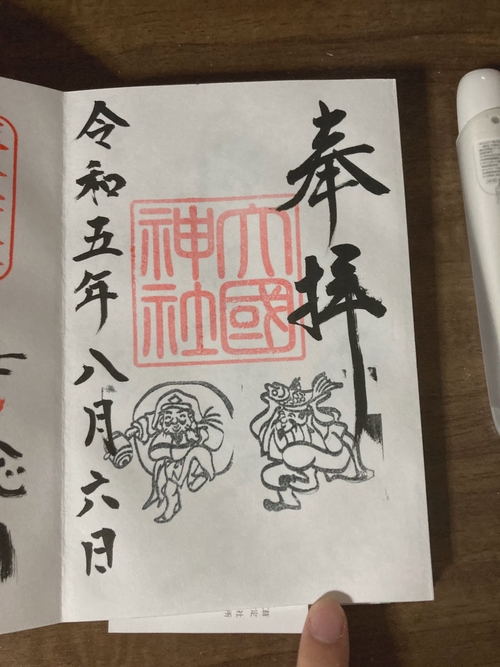 奉拝
大國
神社
令和五年八月六日